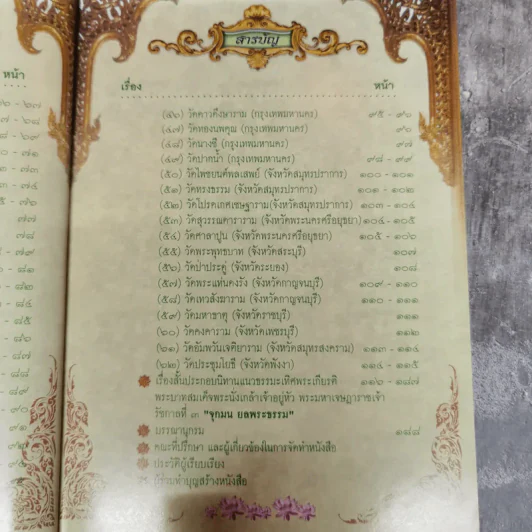 สารบัญ
เรื่อง หน้า
(๔๖) วัดดาวดึงษาราม (กรุงเทพมหานคร) ๙๕ - ๙๖
(๔๗) วัดทองนพคุณ (กรุงเทพมหานคร) ๙๖
(๔๘) วัดนางชี (กรุงเทพมหานคร) ๙๗
(๔๙) วัดปากน้ำ (กรุงเทพมหานคร) ๙๘ - ๙๙
(๕๐) วัดไพชยนต์พลเสพย์ (จังหวัดสมุทรปราการ) ๑๐๐ - ๑๐๑
(๕๑) วัดทรงธรรม (จังหวัดสมุทรปราการ) ๑๐๑ - ๑๐๒
(๕๒) วัดโปรดเกศเชษฐาราม(จังหวัดสมุทรปราการ) ๑๐๓ - ๑๐๔
(๕๓) วัดสุวรรณดาราราม (จังหวัดพระนครศรีอยุธยา) ๑๐๔ - ๑๐๕
(๕๔) วัดศาลาปูน (จังหวัดพระนครศรีอยุธยา) ๑๐๕ - ๑๐๖
(๕๕) วัดพระพุทธบาท (จังหวัดสระบุรี) ๑๐๗
(๕๖) วัดป่าประดู่ (จังหวัดระยอง) ๑๐๘
(๕๗) วัดพระแท่นดงรัง (จังหวัดกาญจนบุรี) ๑๐๙ - ๑๑๐
(๕๘) วัดเทวสังฆาราม (จังหวัดกาญจนบุรี) ๑๑๐ - ๑๑๑
(๕๙) วัดมหาธาตุ (จังหวัดราชบุรี) ๑๑๑
(๖๐) วัดคงคาราม (จังหวัดเพชรบุรี) ๑๑๒
(๖๑) วัดอัมพวันเจติยาราม (จังหวัดสมุทรสงคราม) ๑๑๓ - ๑๑๔
(๖๒) วัดประชุมโยธี (จังหวัดพังงา) ๑๑๔ - ๑๑๕
เรื่องสั้นประกอบนิทานแนวธรรมะเทิดพระเกียรติ ๑๑๖ - ๑๘๗
พระบาทสมเด็จพระนั่งเกล้าเจ้าอยู่หัว พระมหาเจษฎาราชเจ้า
รัชกาลที่ ๓ "จุกมน ยลพระธรรม"
บรรณานุกรม ๑๘๘
คณะที่ปรึกษา และผู้เกี่ยวข้องในการจัดทำหนังสือ
ประวัติผู้เรียบเรียง
ผู้ร่วมทำบุญสร้างหนังสือ